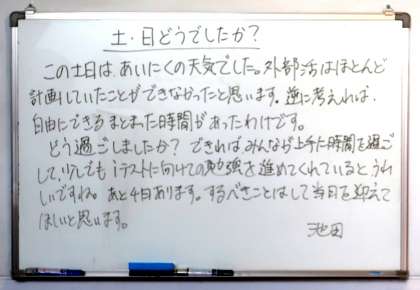 土・日どうでしたか?
この土日は、あいにくの天気でした。外部活はほとんど
計画していたことができなかったと思います。逆に考えれば、
自由にできるまとまった時間があったわけです。
どう過ごしましたか? できればみんなが上手に時間を過ご
して、少しでも iテストに向けての勉強を進めてくれているとうれ
しいですね。あと4日あります。するべきことはして当日を迎えて
ほしいと思います。
池田